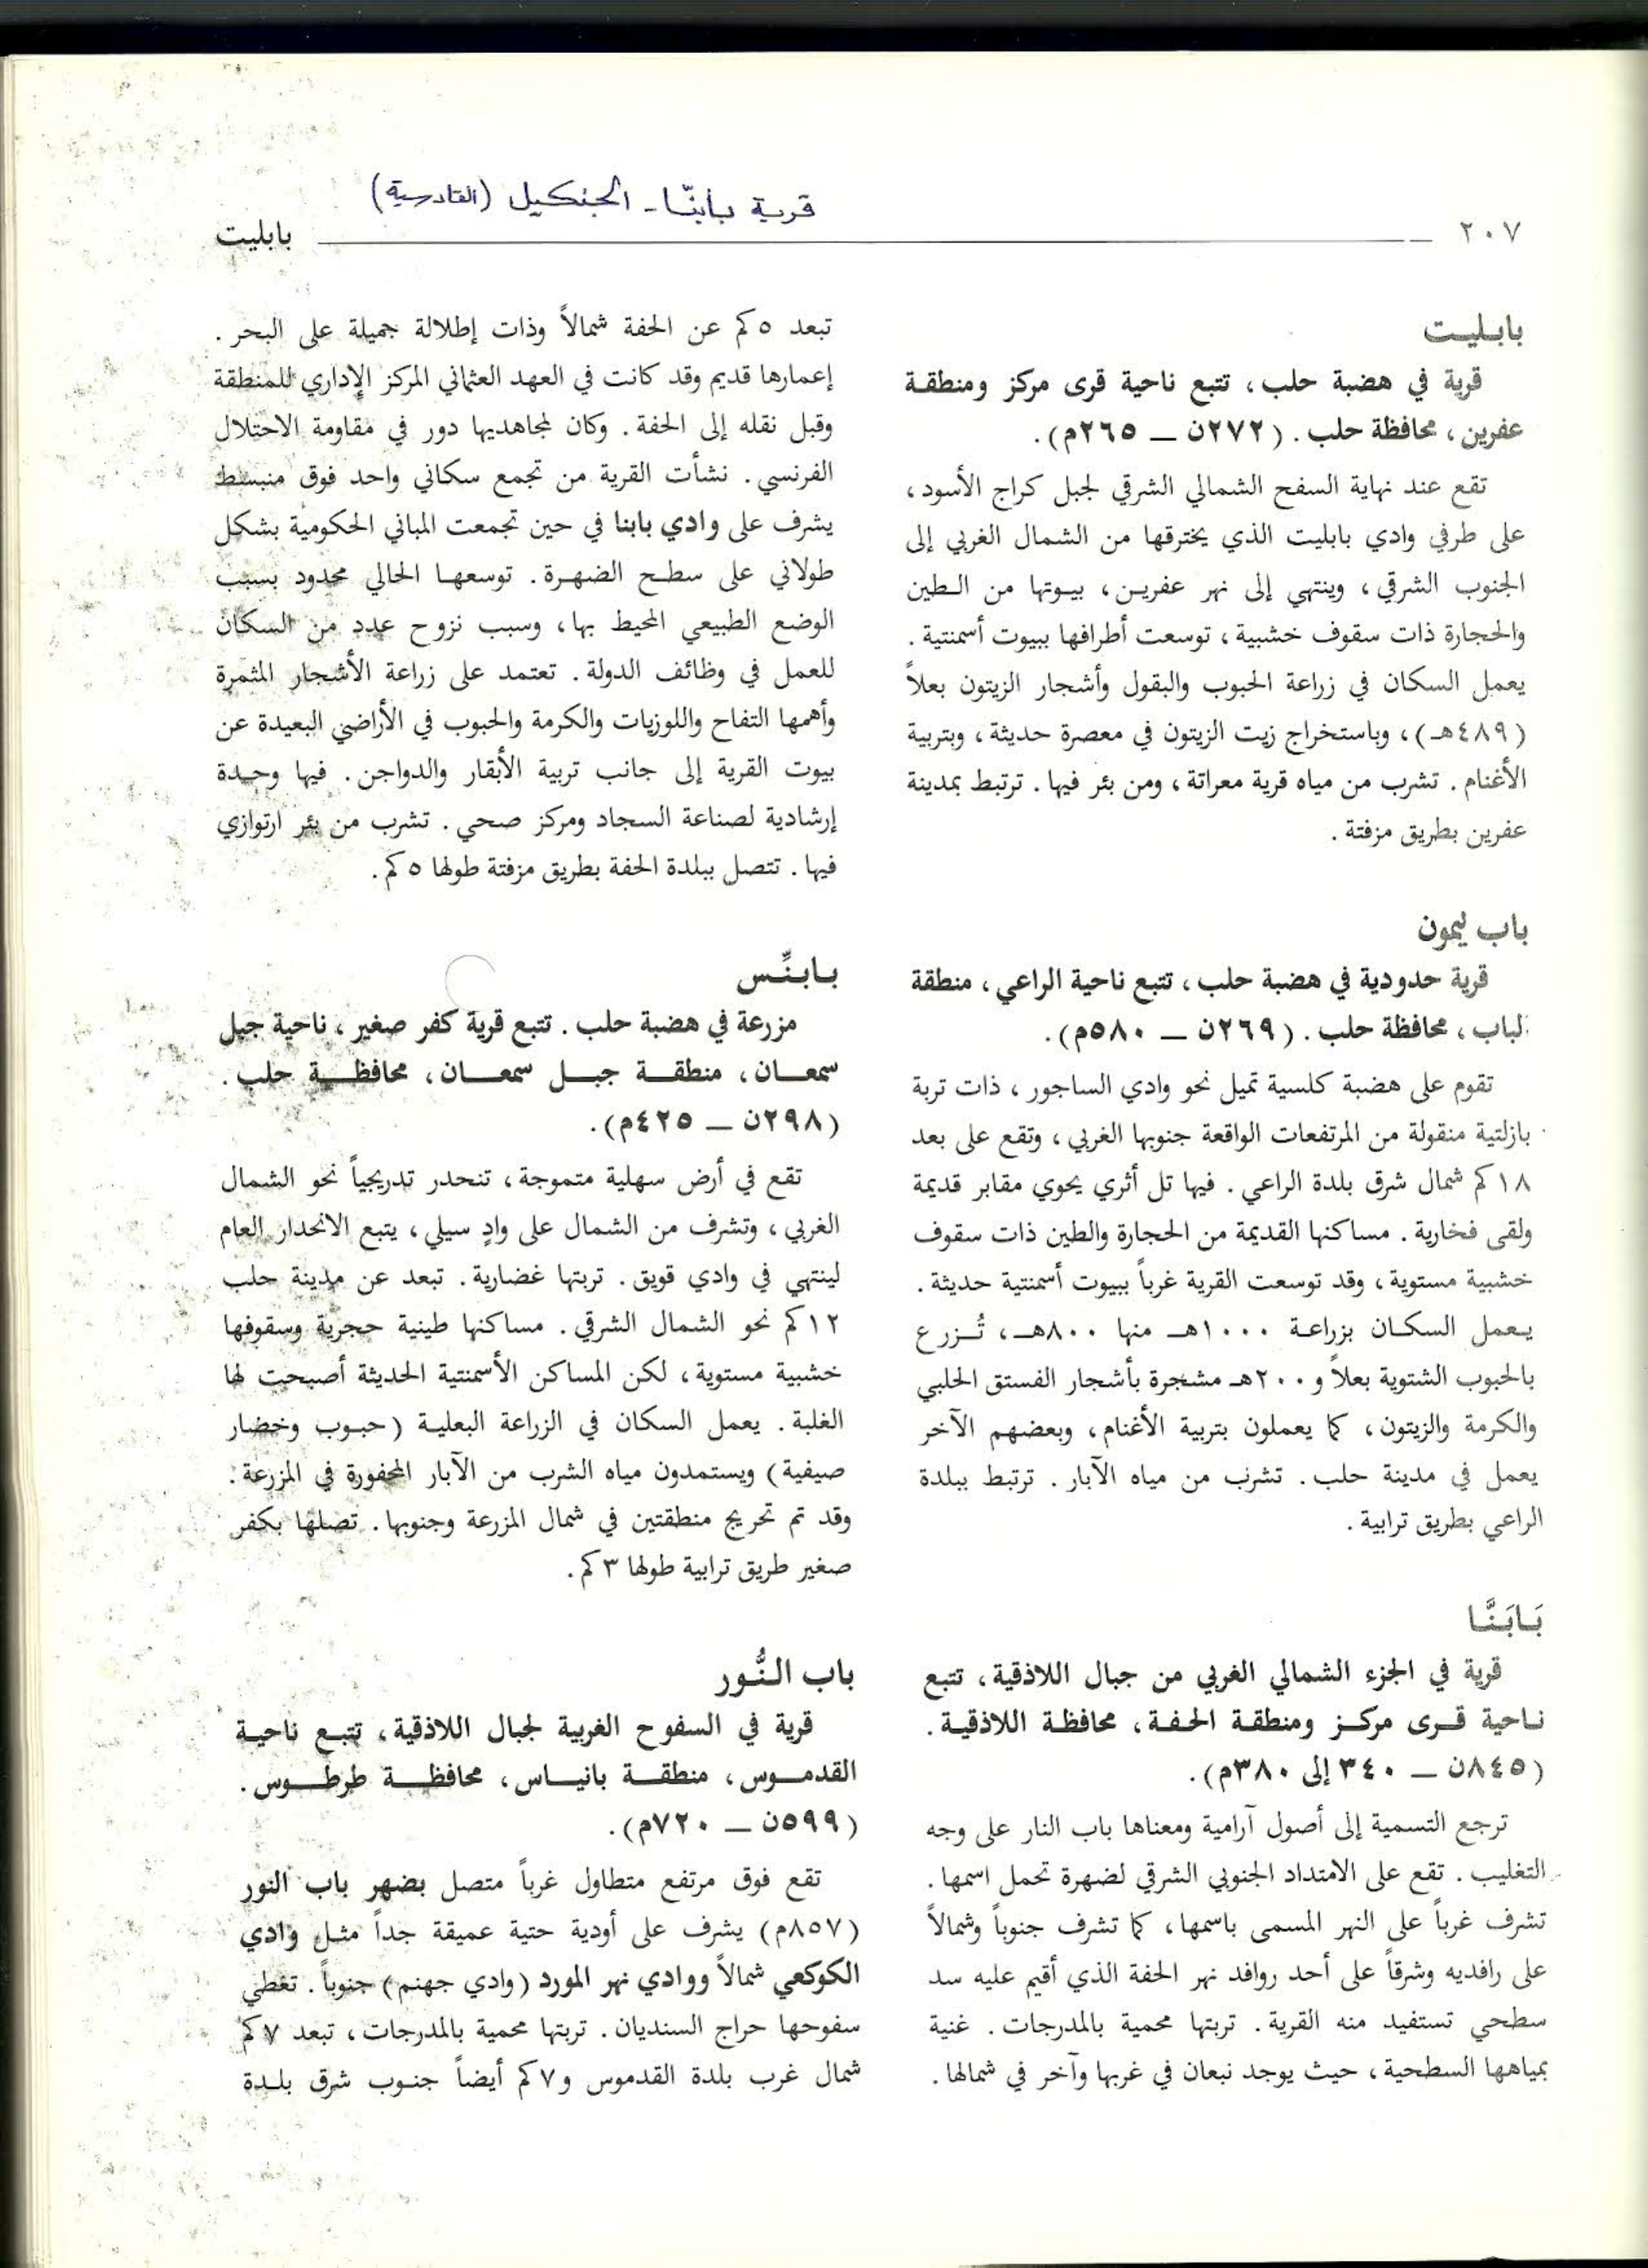 قرية بابنّا - الجنكيل (القادسية)
٢٠٧
بابليت
بابليت
قرية في هضبة حلب، تتبع ناحية قرى مركز ومنطقة
عفرين، محافظة حلب. (٢٧٢ن — ٢٦٥م).
تقع عند نهاية السفح الشمالي الشرقي لجبل كراج الأسود،
على طرفي وادي بابليت الذي يخترقها من الشمال الغربي إلى
الجنوب الشرقي، وينتهي إلى نهر عفرين، بيوتها من الطين
والحجارة ذات سقوف خشبية، توسعت أطرافها ببيوت أسمنتية.
يعمل السكان في زراعة الحبوب والبقول وأشجار الزيتون بعلاً
(٤٨٩هـ)، وباستخراج زيت الزيتون في معصرة حديثة، وبتربية
الأغنام. تشرب من مياه قرية معراتة، ومن بئر فيها. ترتبط بمدينة
عفرين بطريق مزفتة.
باب ليمون
قرية حدودية في هضبة حلب، تتبع ناحية الراعي، منطقة
الباب، محافظة حلب. (٢٦٩ن — ٥٨٠م).
تقوم على هضبة كلسية تميل نحو وادي الساجور، ذات تربة
بازلتية منقولة من المرتفعات الواقعة جنوبها الغربي، وتقع على بعد
١٨كم شمال شرق بلدة الراعي. فيها تل أثري يحوي مقابر قديمة
ولقى فخارية. مساكنها القديمة من الحجارة والطين ذات سقوف
خشبية مستوية، وقد توسعت القرية غرباً ببيوت أسمنتية حديثة.
يعمل السكان بزراعة ١٠٠٠هـ منها ٨٠٠هـ، تُزرع
بالحبوب الشتوية بعلاً و٢٠٠هـ مشجرة بأشجار الفستق الحلبي
والكرمة والزيتون، كما يعملون بتربية الأغنام، وبعضهم الآخر
يعمل في مدينة حلب. تشرب من مياه الآبار. ترتبط ببلدة
الراعي بطريق ترابية.
بَابَنَّا
قرية في الجزء الشمالي الغربي من جبال اللاذقية، تتبع
ناحية قرى مركز ومنطقة الحفة، محافظة اللاذقية.
(٨٤٥ن — ٣٤٠ إلى ٣٨٠م).
ترجع التسمية إلى أصول آرامية ومعناها باب النار على وجه
التغليب. تقع على الامتداد الجنوبي الشرقي لضهرة تحمل اسمها.
تشرف غرباً على النهر المسمى باسمها، كما تشرف جنوباً وشمالاً
على رافديه وشرقاً على أحد روافد نهر الحفة الذي أقيم عليه سد
سطحي تستفيد منه القرية. تربتها محمية بالمدرجات. غنية
بمياهها السطحية، حيث يوجد نبعان في غربها وآخر في شمالها.
تبعد ٥كم عن الحفة شمالاً وذات إطلالة جميلة على البحر.
إعمارها قديم وقد كانت في العهد العثماني المركز الإداري للمنطقة
وقبل نقله إلى الحفة. وكان لمجاهديها دور في مقاومة الاحتلال
الفرنسي. نشأت القرية من تجمع سكاني واحد فوق منبسط
يشرف على وادي بابنا في حين تجمعت المباني الحكومية بشكل
طولاني على سطح الضهرة. توسعها الحالي محدود بسبب
الوضع الطبيعي المحيط بها، وسبب نزوح عدد من السكان
للعمل في وظائف الدولة. تعتمد على زراعة الأشجار المثمرة
وأهمها التفاح واللوزيات والكرمة والحبوب في الأراضي البعيدة عن
بيوت القرية إلى جانب تربية الأبقار والدواجن. فيها وحدة
إرشادية لصناعة السجاد ومركز صحي. تشرب من بئر ارتوازي
فيها. تتصل ببلدة الحفة بطريق مزفتة طولها ٥كم.
بابنِّس
مزرعة في هضبة حلب. تتبع قرية كفر صغير، ناحية جبل
سمعان، منطقة جبل سمعان، محافظة حلب.
(٢٩٨ن — ٤٢٥م).
تقع في أرض سهلية متموجة، تنحدر تدريجياً نحو الشمال
الغربي، وتشرف من الشمال على وادٍ سيلي، يتبع الانحدار العام
لينتهي في وادي قويق. تربتها غضارية. تبعد عن مدينة حلب
١٢كم نحو الشمال الشرقي. مساكنها طينية حجرية وسقوفها
خشبية مستوية، لكن المساكن الأسمنتية الحديثة أصبحت لها
الغلبة. يعمل السكان في الزراعة البعلية (حبوب وخضار
صيفية) ويستمدون مياه الشرب من الآبار المحفورة في المزرعة.
وقد تم تحريج منطقتين في شمال المزرعة وجنوبها. تصلها بكفر
صغير طريق ترابية طولها ٣كم.
باب النُّور
قرية في السفوح الغربية لجبال اللاذقية، تتبع ناحية
القدموس، منطقة بانياس، محافظة طرطوس.
(٥٩٩ن — ٧٢٠م).
تقع فوق مرتفع متطاول غرباً متصل بضهر باب النور
(٨٥٧م) يشرف على أودية حتية عميقة جداً مثل وادي
الكوكعي شمالاً ووادي نهر المورد (وادي جهنم) جنوباً. تغطي
سفوحها حراج السنديان. تربتها محمية بالمدرجات، تبعد ٧كم
شمال غرب بلدة القدموس و٧كم أيضاً جنوب شرق بلدة